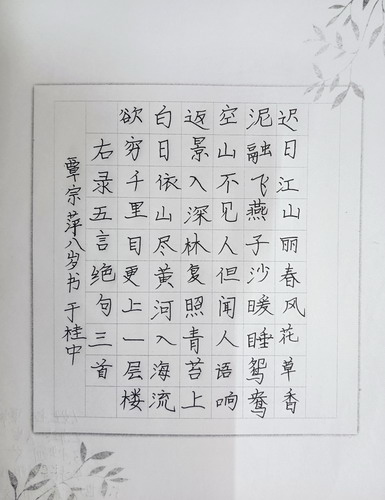 迟日江山丽春风花草香
泥融飞燕子沙暖睡鸳鸯
空山不见人但闻人语响
返景入深林复照青苔上
白日依山尽黄河入海流
欲穷千里目更上一层楼
右录五言绝句三首
覃宗萍八岁书于桂中